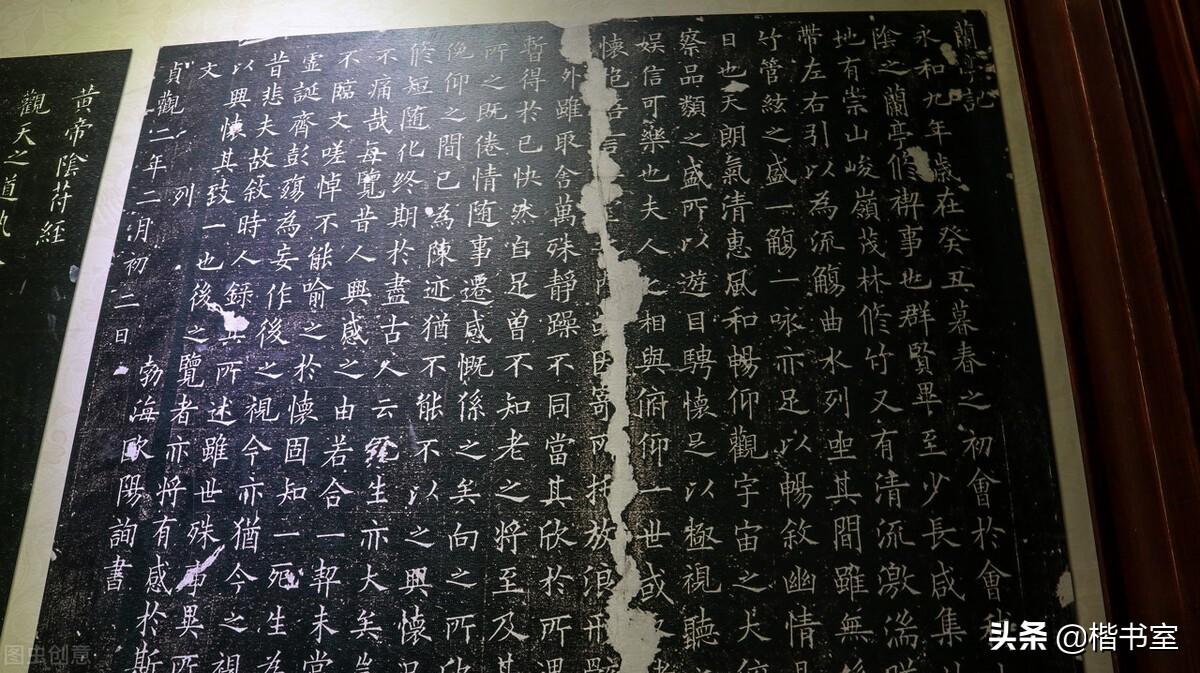 蘭亭記
永和九年歲在癸丑暮春之初會於會
陰之蘭亭修禊事也群賢畢至少長咸集
地有崇山峻嶺茂林修竹又有清流激湍
帶左右引以為流觴曲水列坐其間雖無
竹管絃之盛一觴一咏亦足以暢敘幽情是
日也天朗氣清惠風和暢仰觀宇宙之大俯
察品類之盛所以遊目騁懷足以極視聽
娛信可樂也夫人之相與俯仰一世或取
懷抱悟言內或因寄所托放浪形
外雖取舍萬殊靜躁不同當其欣於所遇
暫得於己快然自足曾不知老之將至及其
所之既倦情随事遷感慨係之矣向之所欣
俛仰之間已為陳迹猶不能不以之興懷況
修短随化終期於盡古人云死生亦大矣豈
不痛哉每覽昔人興感之由若合一契未嘗
不臨文嗟悼不能喻之於懷固知一死生為
靈誕齊彭殤為妄作後之視今亦猶今之視
昔悲夫故敘時人錄其所述雖世殊事異所
以興懷其致一也後之覽者亦將有感於斯
文
列
貞觀二年二月初二日 勃海歐陽詢書
黃帝陰符經
觀天之道執
图虫创意
头条 @楷书室